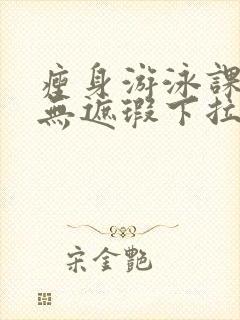 瘦身游泳課
無遮瑕下拉
宋金艷